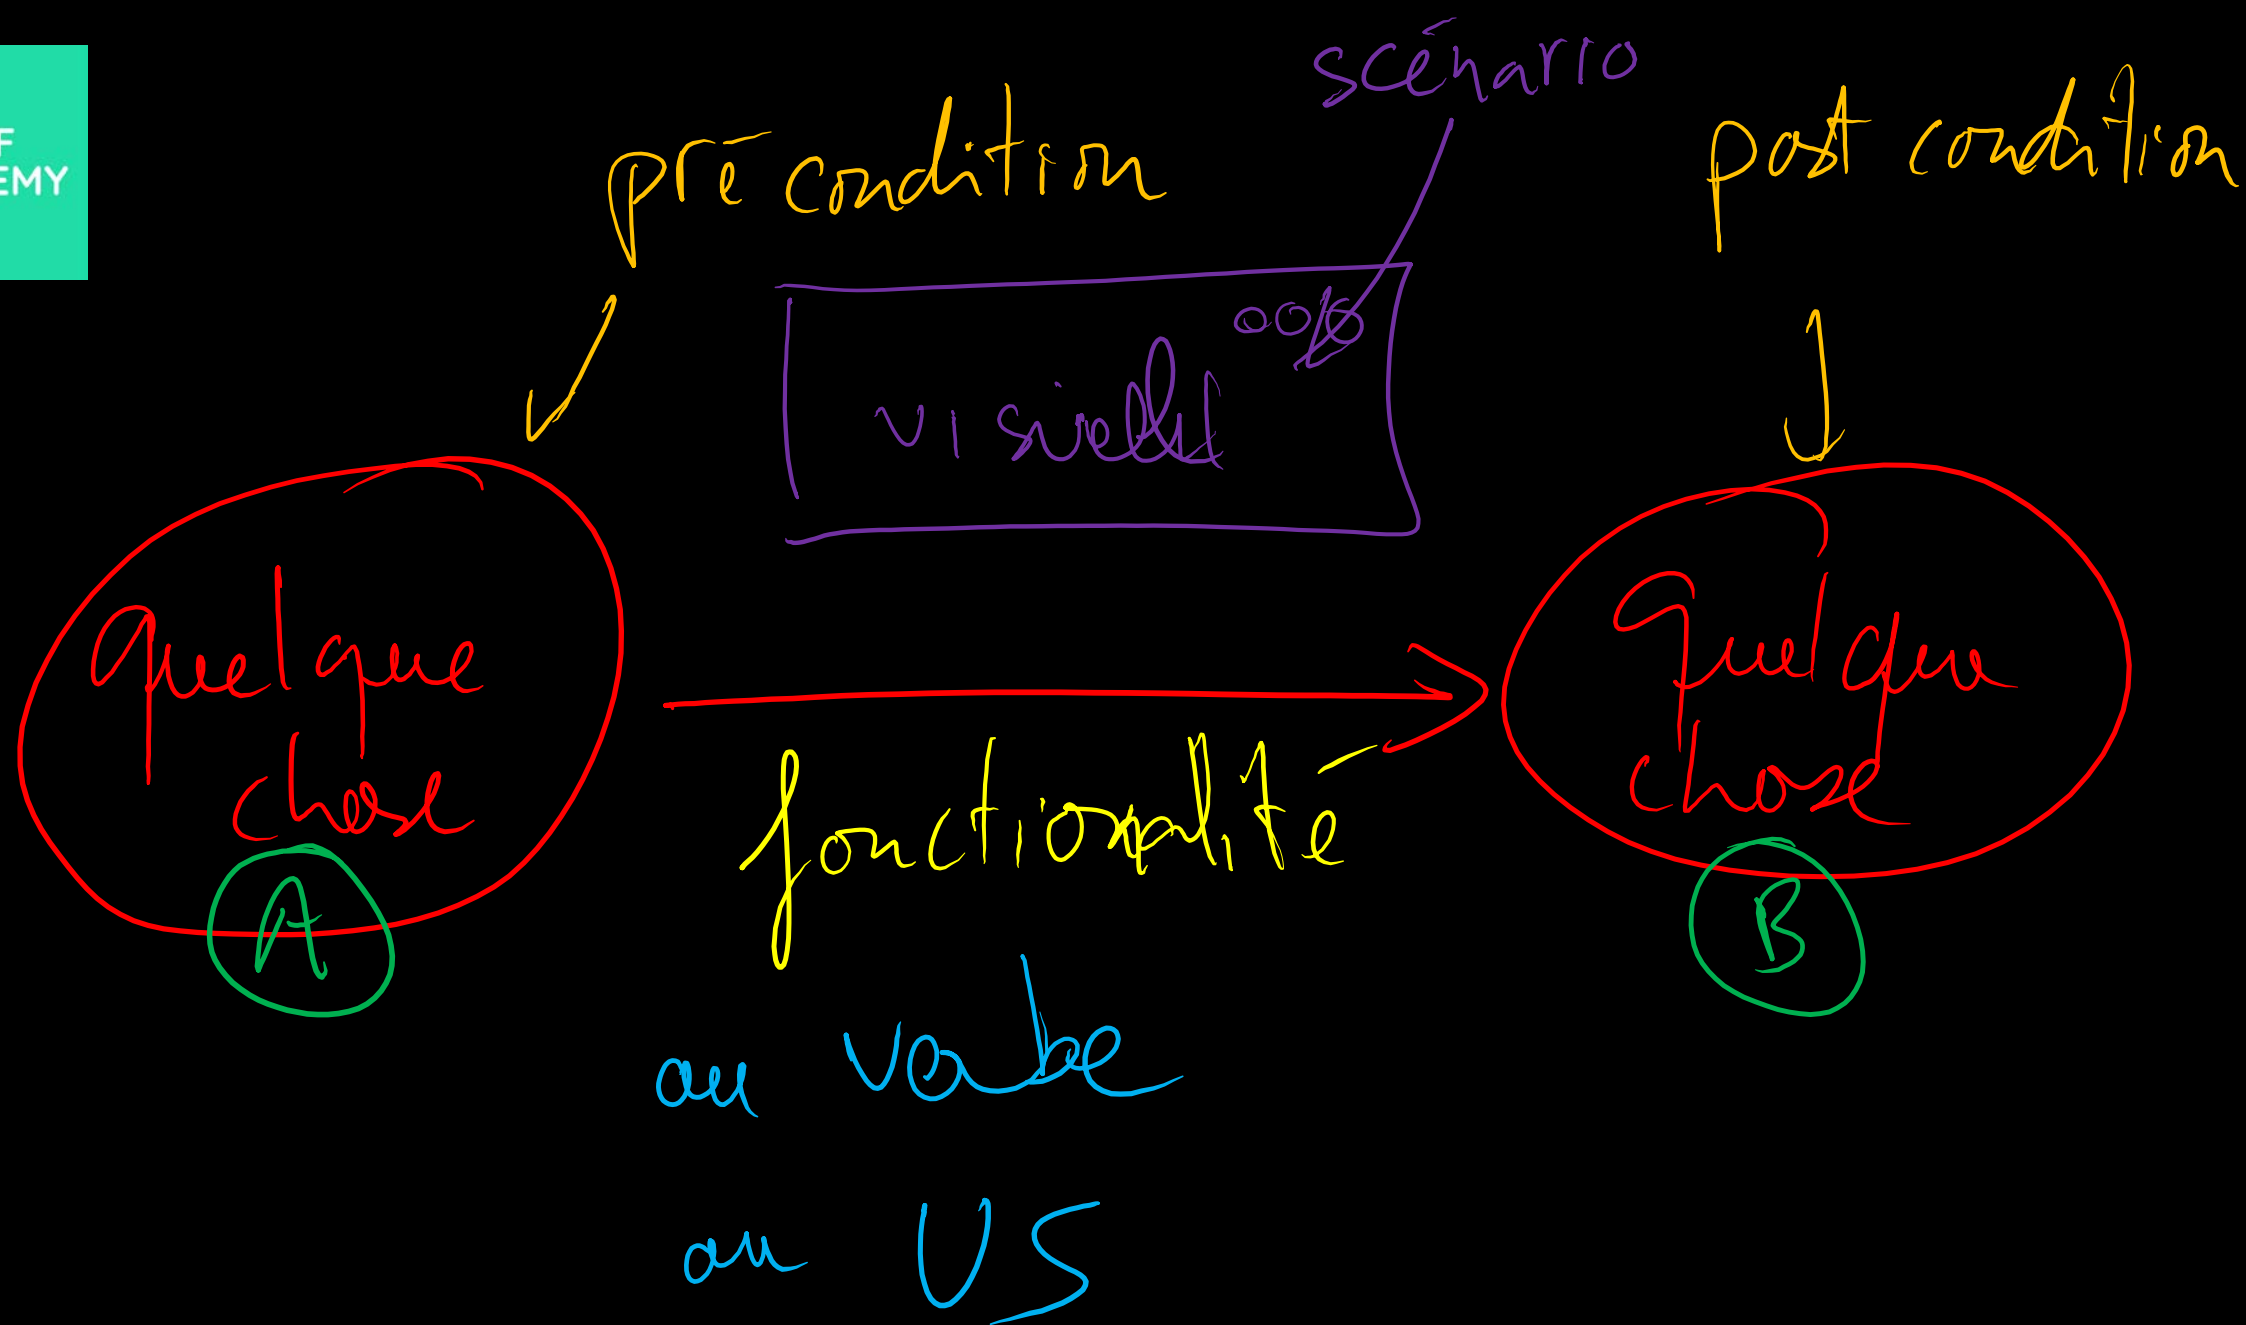 scénario
pré condition
post condition
F
EMY
quelque
chose
A
fonctionalité
quelque
chose
B
ou verbe
ou US